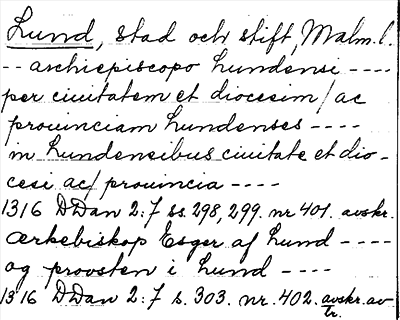 Lund, stad och stift, Malm.l.
-- archiepiscopo lundensi ----
per ciuitatem et diocesim/ac
prouinciam lundenses ----
in lundensibus ciuitate et dio-
cesi ac/prouincia ----
1316 DDan 2:7 ss. 298, 299. nr 401. avskr.
ærkebiskop Esger af Lund ----
og provsten i Lund ----
1316 DDan 2:7 s. 303. nr. 402. avskr. av
tr.